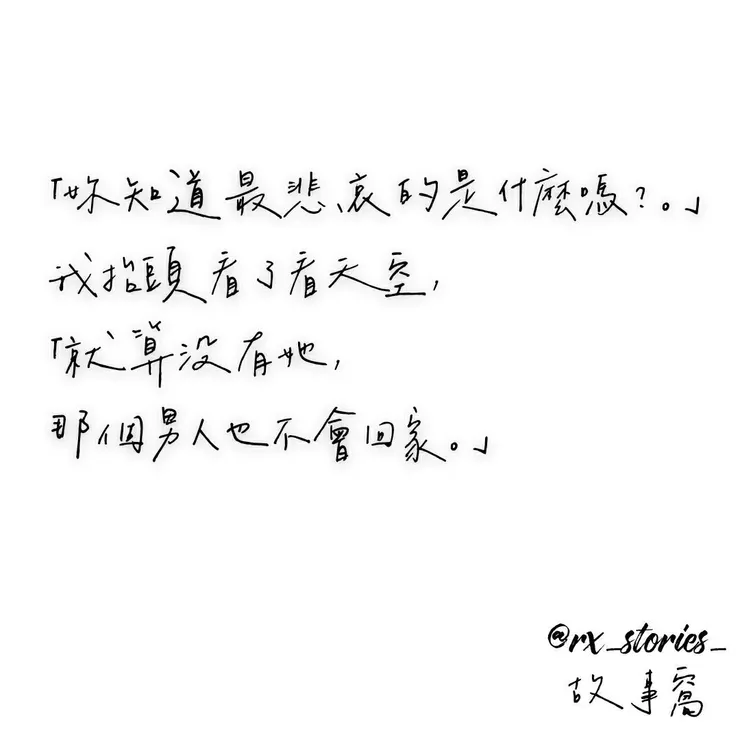 「妳知道最悲哀的是什麼嗎?。」
我抬頭看了看天空,
「就算没有她,
那個男人也不會回家。」
@rx_stories_
故事窩